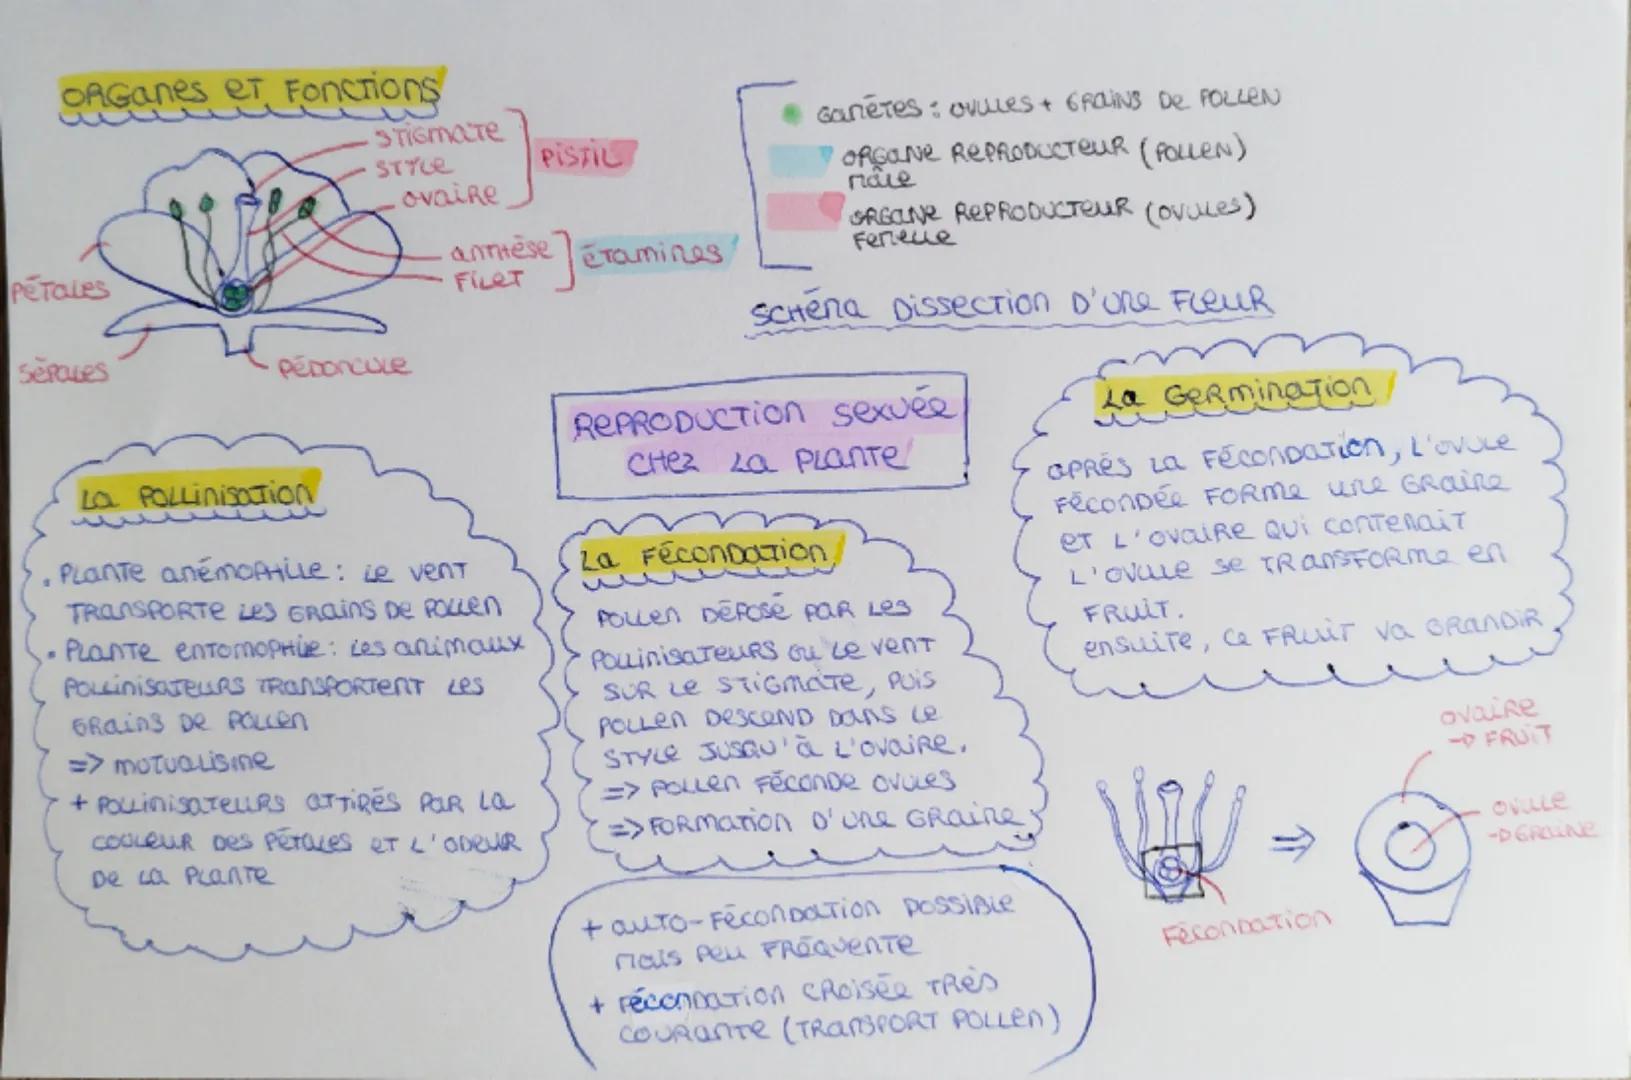 ORGANES ET FONCTIONS
STIGMATE
STYLE
OVAIRE
PISTIL
ANTHÈSE
FILET
ÉTAMINES
PÉTALES
SÉPALES
PÉDONCULE
GAMÈTES : OVULES + GRAINS DE POLLEN
ORGANE REPRODUCTEUR (POLLEN)
MÂLE
ORGANE REPRODUCTEUR (OVULES)
FEMELLE
SCHÉMA DISSECTION D'UNE FLEUR
REPRODUCTION SEXUÉE
CHEZ LA PLANTE
LA POLLINISATION
. PLANTE ANÉMOPHILE : LE VENT
TRANSPORTE LES GRAINS DE POLLEN
. PLANTE ENTOMOPHILE : LES ANIMAUX
POLLINISATEURS TRANSPORTENT LES
GRAINS DE POLLEN
=> MUTUALISME
+ POLLINISATEURS ATTIRÉS PAR LA
COULEUR DES PÉTALES ET L'ODEUR
DE LA PLANTE
LA FÉCONDATION
POLLEN DÉPOSÉ PAR LES
POLLINISATEURS OU LE VENT
SUR LE STIGMATE, PUIS
POLLEN DESCEND DANS LE
STYLE JUSQU'À L'OVAIRE.
=> POLLEN FÉCONDE OVULES
=> FORMATION D'UNE GRAINE
+ AUTO-FÉCONDATION POSSIBLE
MAIS PEU FRÉQUENTE
+ FÉCONDATION CROISÉE TRÈS
COURANTE (TRANSPORT POLLEN)
LA GERMINATION
APRÈS LA FÉCONDATION, L'OVULE
FÉCONDÉE FORME UNE GRAINE
ET L'OVAIRE QUI CONTENAIT
L'OVULE SE TRANSFORME EN
FRUIT.
ENSUITE, CE FRUIT VA GRANDIR
OVAIRE
→ FRUIT
OVULE
→ GRAINE
⇒
FÉCONDATION